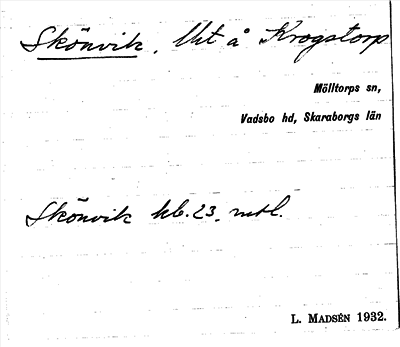 Skönvik. Uht å Krogstorp
Mölltorps sn,
Vadsbo hd, Skaraborgs län
Skönvik hb. 23. mtl.
L. MADSÉN 1932.